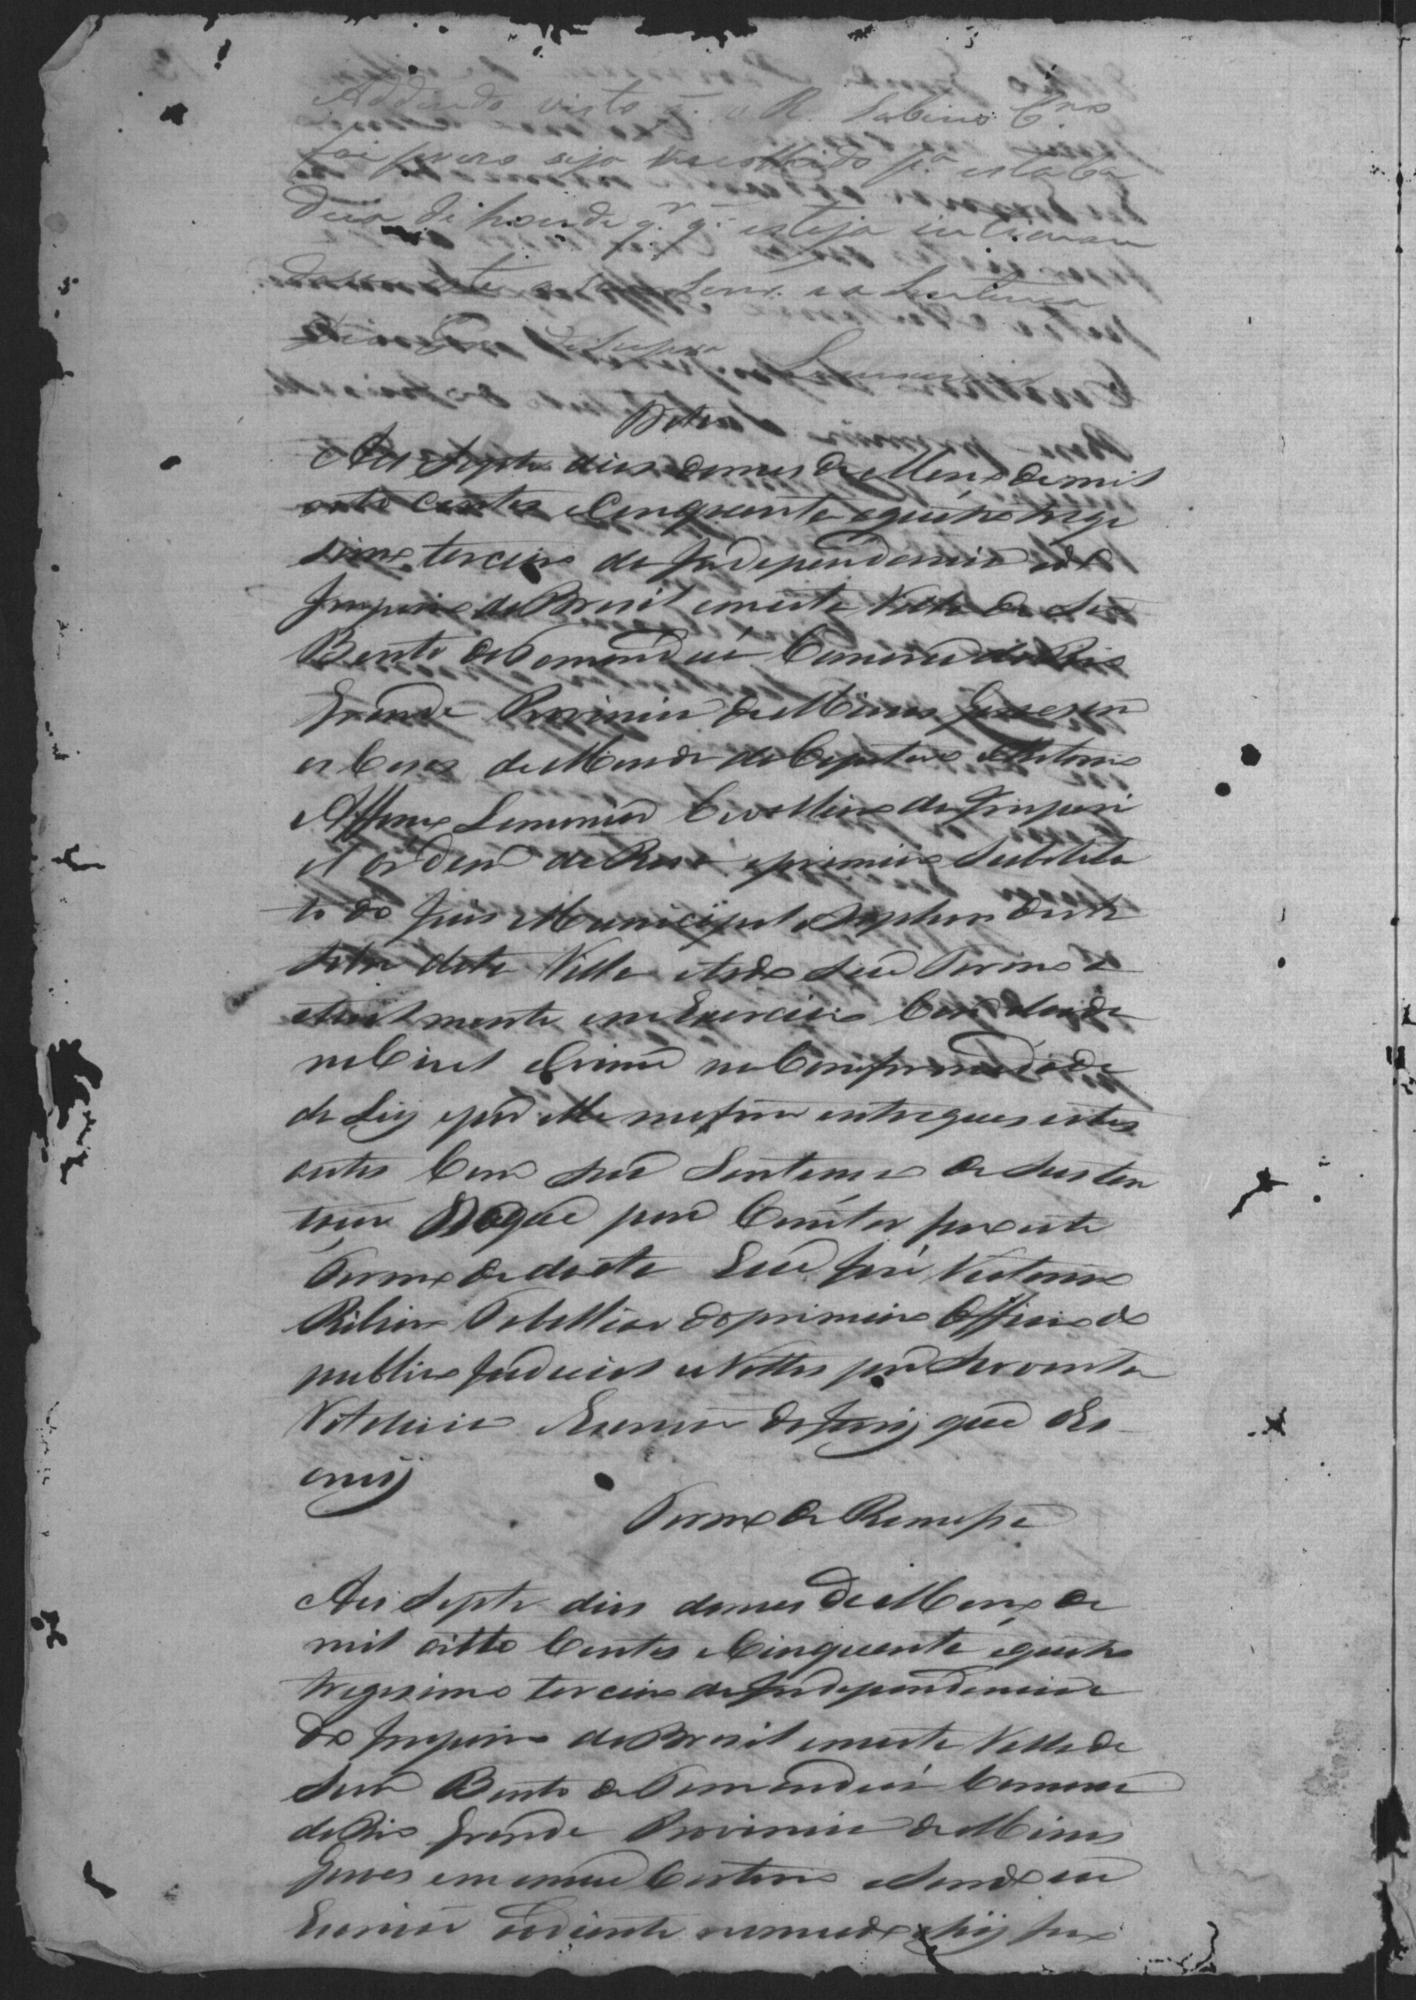 Addendo visto q. o R. Sabino
foi prezo seja recolhido p.a esta Ca
deia de honde q.r q. esteja
a Sentença
Data
Aos Septe dias do mes de Março de mil
oito centos e Cinquenta e quatro trige
simo terceiro da Independencia e do
Imperio do Brasil em esta Villa de São
Bento do Tamanduá Comarca do Rio
Grande Provincia de Minas Geraes em
as Casas de Morada do Capitão Antonio
Affonso Lamounier Cavalleiro da Imperi
al Ordem da Rosa e primeiro Substitu
to do Juis Municipal e Orphaos desta
Villa e todo Seu Termo a
ctualmente em Exercicio Com alçada
no Civel e Crime na Conformidade
da Ley e por elle me forão entregues estes
autos Com sua Sentença de Susten
tação do que para Constar faço este
Termo de data Eu José Victorino
Ribeiro Tabelliao do primeiro Officio do
publico Judicial e Nottas por Serventia
Vitalicia Escrivão do Jury que o Es
crevy
Termo de Remessa
Aos Septe dias do mes de Março de
mil oitto Centos e Cinquenta e quatro
trigesimo terceiro da Independencia e
do Imperio do Brasil em esta Villa de
São Bento do Tamanduá Comarca
do Rio Grande Provincia de Minas
Geraes em meu Cartorio e Sendo eu
Escrivão ao diante nomeado ahy faço